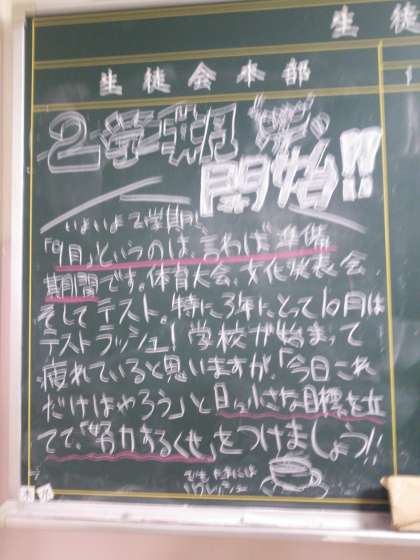 生徒
生徒会本部
2学期
開始!!
いよいよ2学期!
「9月」というのは、言わば準備
期間です。体育大会、文化発表会、
そしてテスト。特に3年にとって10月は
テストラッシュ!学校が始まって
疲れていると思いますが、「今日これ
だけはやろう」と日々小さな目標を立
てて、「努力するくせ」をつけましょう!!
でも たまには